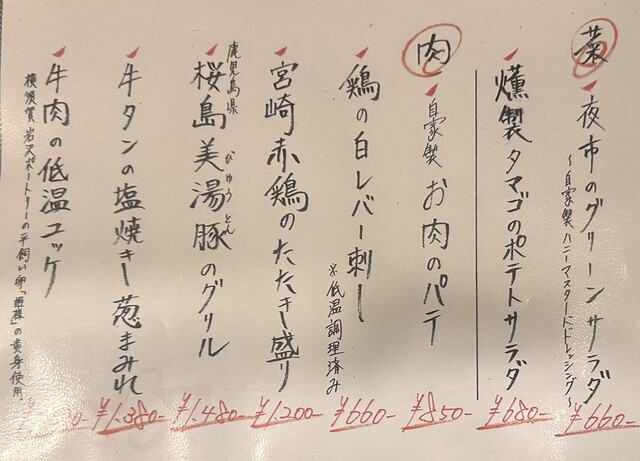 菜
夜市のグリーンサラダ
～自家製ハニーマスタードドレッシング～
¥660-
燻製タマゴのポテトサラダ
¥680-
肉
自家製お肉のパテ
¥850-
鶏の白レバー刺し
※低温調理済み
¥660-
宮崎赤鶏のたたき盛り
¥1.200-
鹿児島県
桜島美湯豚のグリル
びゅうとん
¥1.480-
牛タンの塩焼き葱まみれ
¥1.380-
牛肉の低温ユッケ
横須賀 岩沢ポートリーの平飼い卵「」の黄身使用